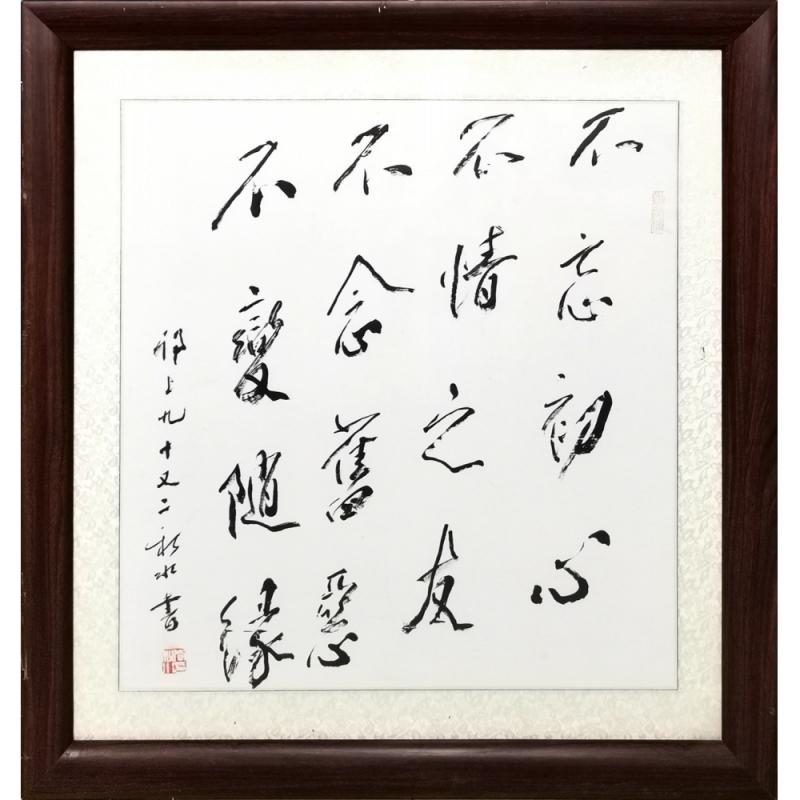 不忘初心
不情之友
不念舊惡
不變隨緣
九十又二 水書